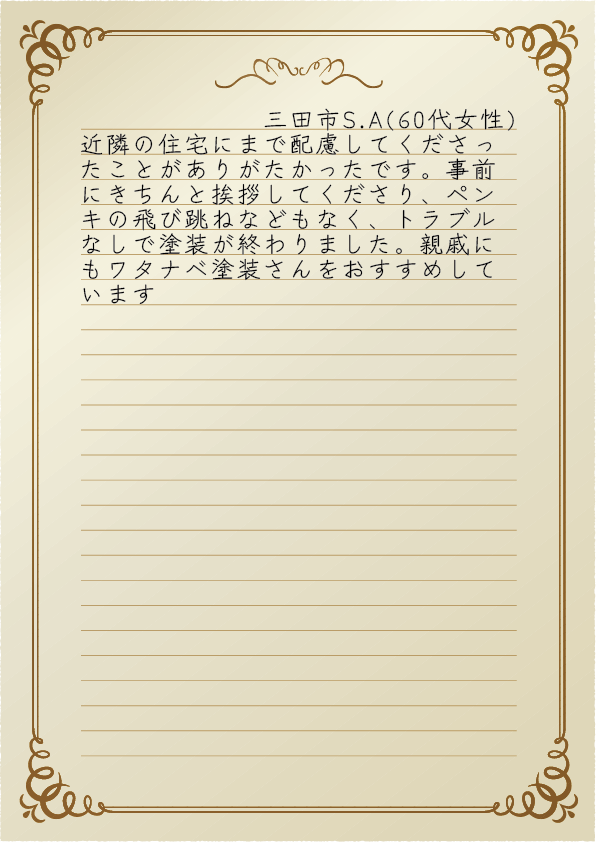 三田市S.A(60代女性)
近隣の住宅にまで配慮してくださっ
たことがありがたかったです。事前
にきちんと挨拶してくださり、ペン
キの飛び跳ねなどもなく、トラブル
なしで塗装が終わりました。親戚に
もワタナベ塗装さんをおすすめして
います